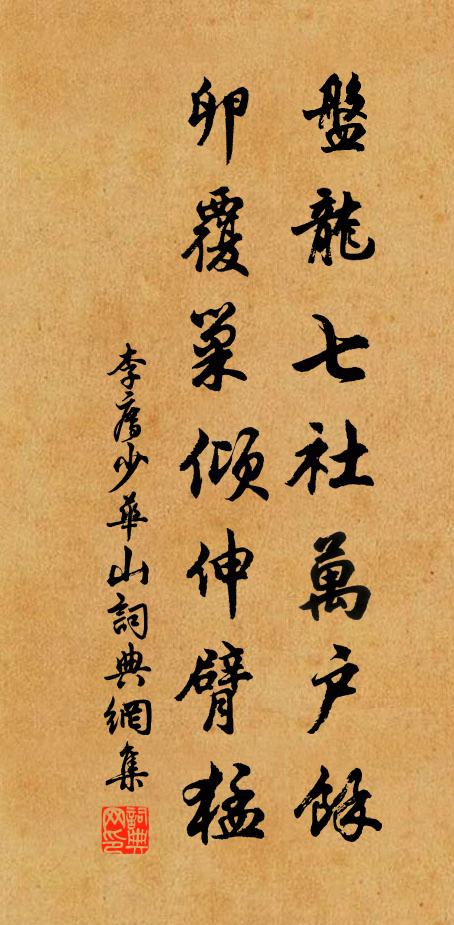 盤龍七社萬户餘
卵覆巢傾伸臂猛
李廌少華山詞典網集
詞典网印